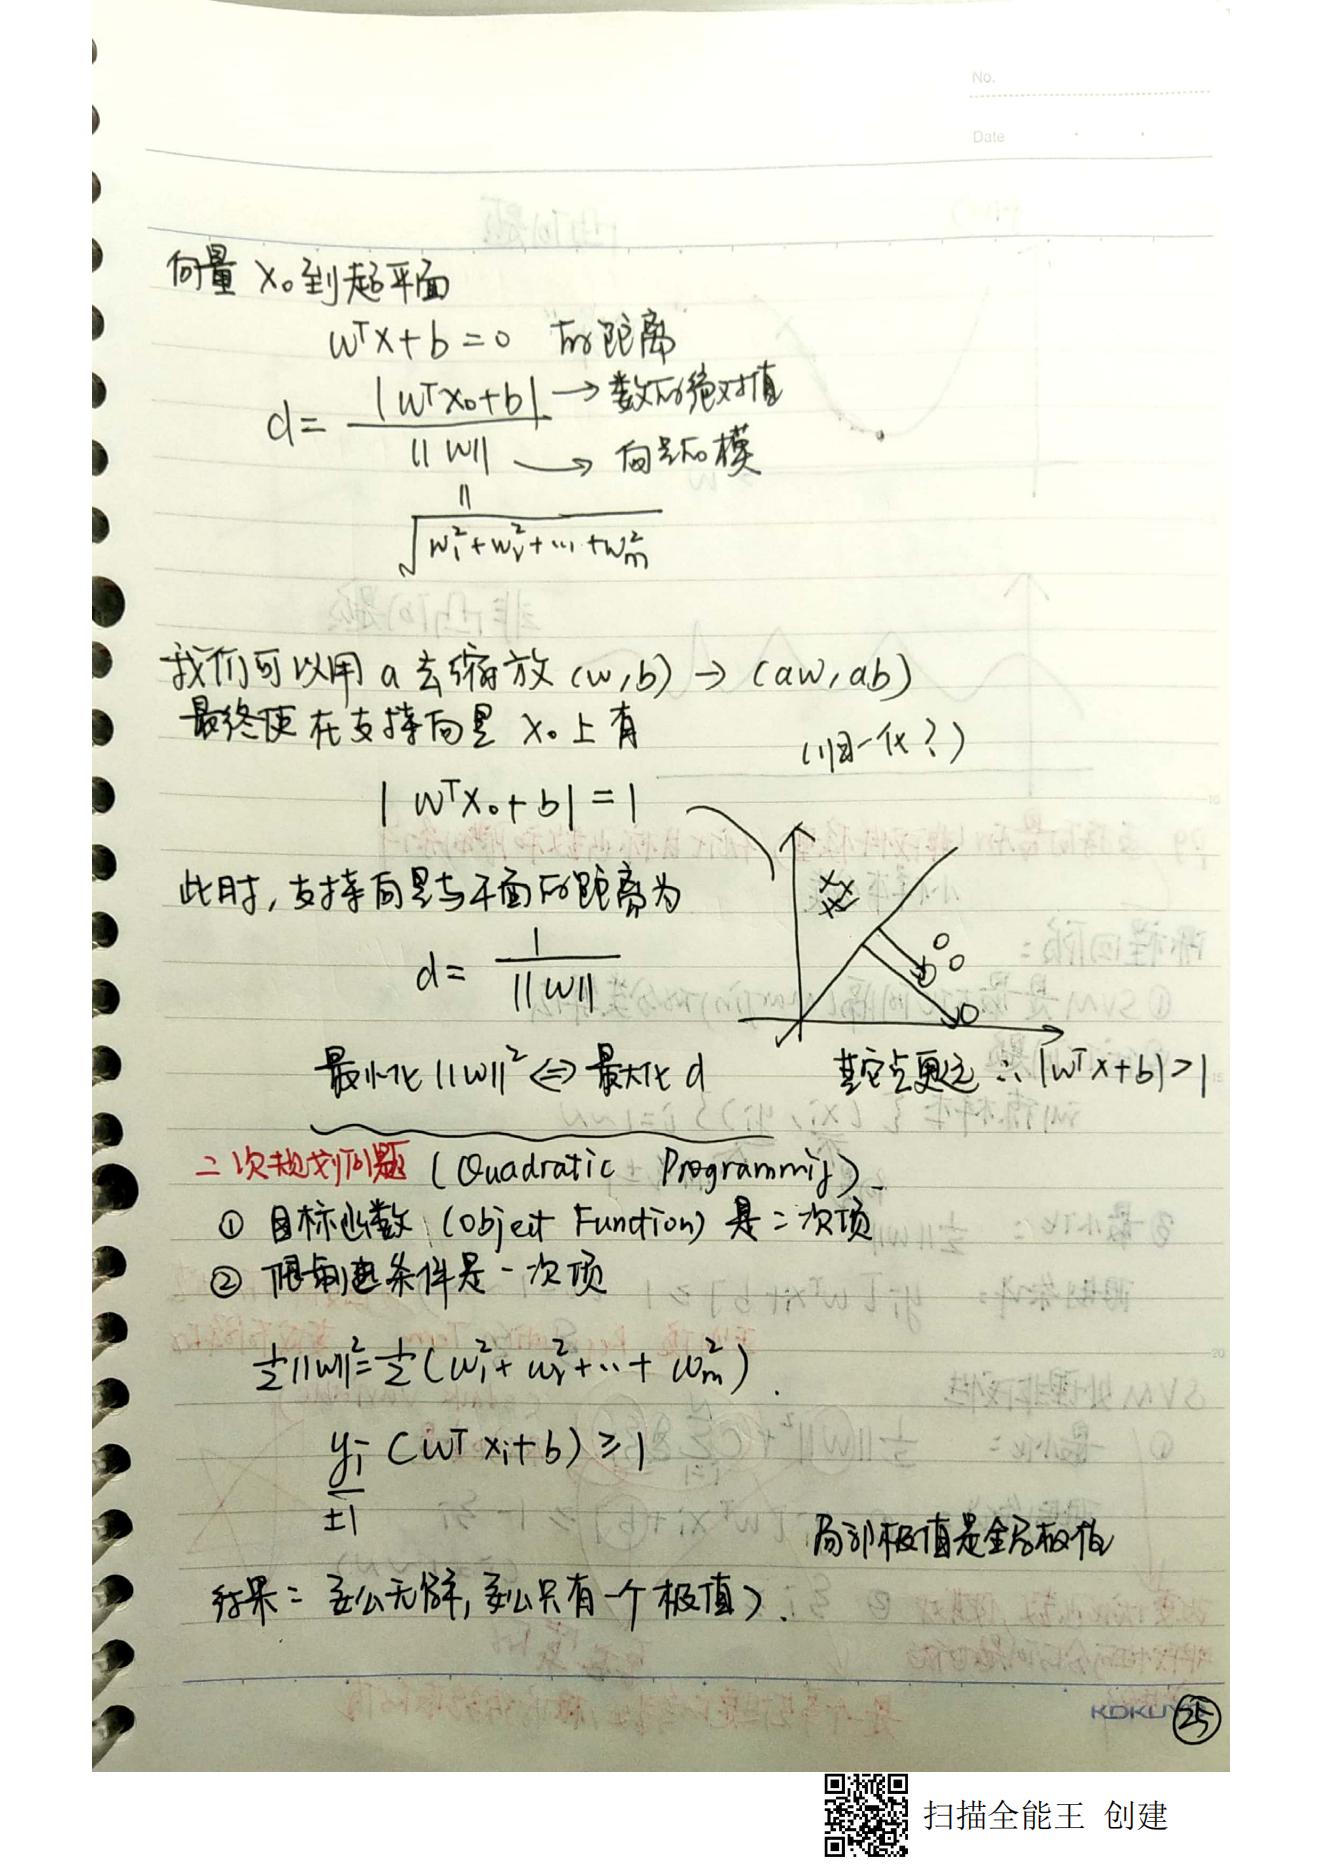 No.
Date
向量 x₀到超平面
wᵀx+b=0 的距离
d= |wᵀx₀+b| / ||w|| →数的绝对值
→ 向量的模
||
√(w₁²+w₂²+…+wₘ²)
我们可以用 a 去缩放 (w,b) → (aw,ab)
最终使在支持向量 x₀上有
(归一化?)
|wᵀx₀+b|=1
此时,支持向量与平面的距离为
d= 1 / ||w||
最小化 ||w||² ⇔ 最大化 d
其它点更远 ∴ |wᵀx+b|>1
二次规划问题 (Quadratic Programming)
① 目标函数 (Object Function) 是二次项
② 限制条件是一次项
½||w||²=½(w₁²+w₂²+…+wₘ²).
yᵢ (wᵀxᵢ+b) ≥ 1
±1
局部极值是全局极值
结果= 要么无解,要么只有一个极值).
KOKUYO
25
扫描全能王 创建